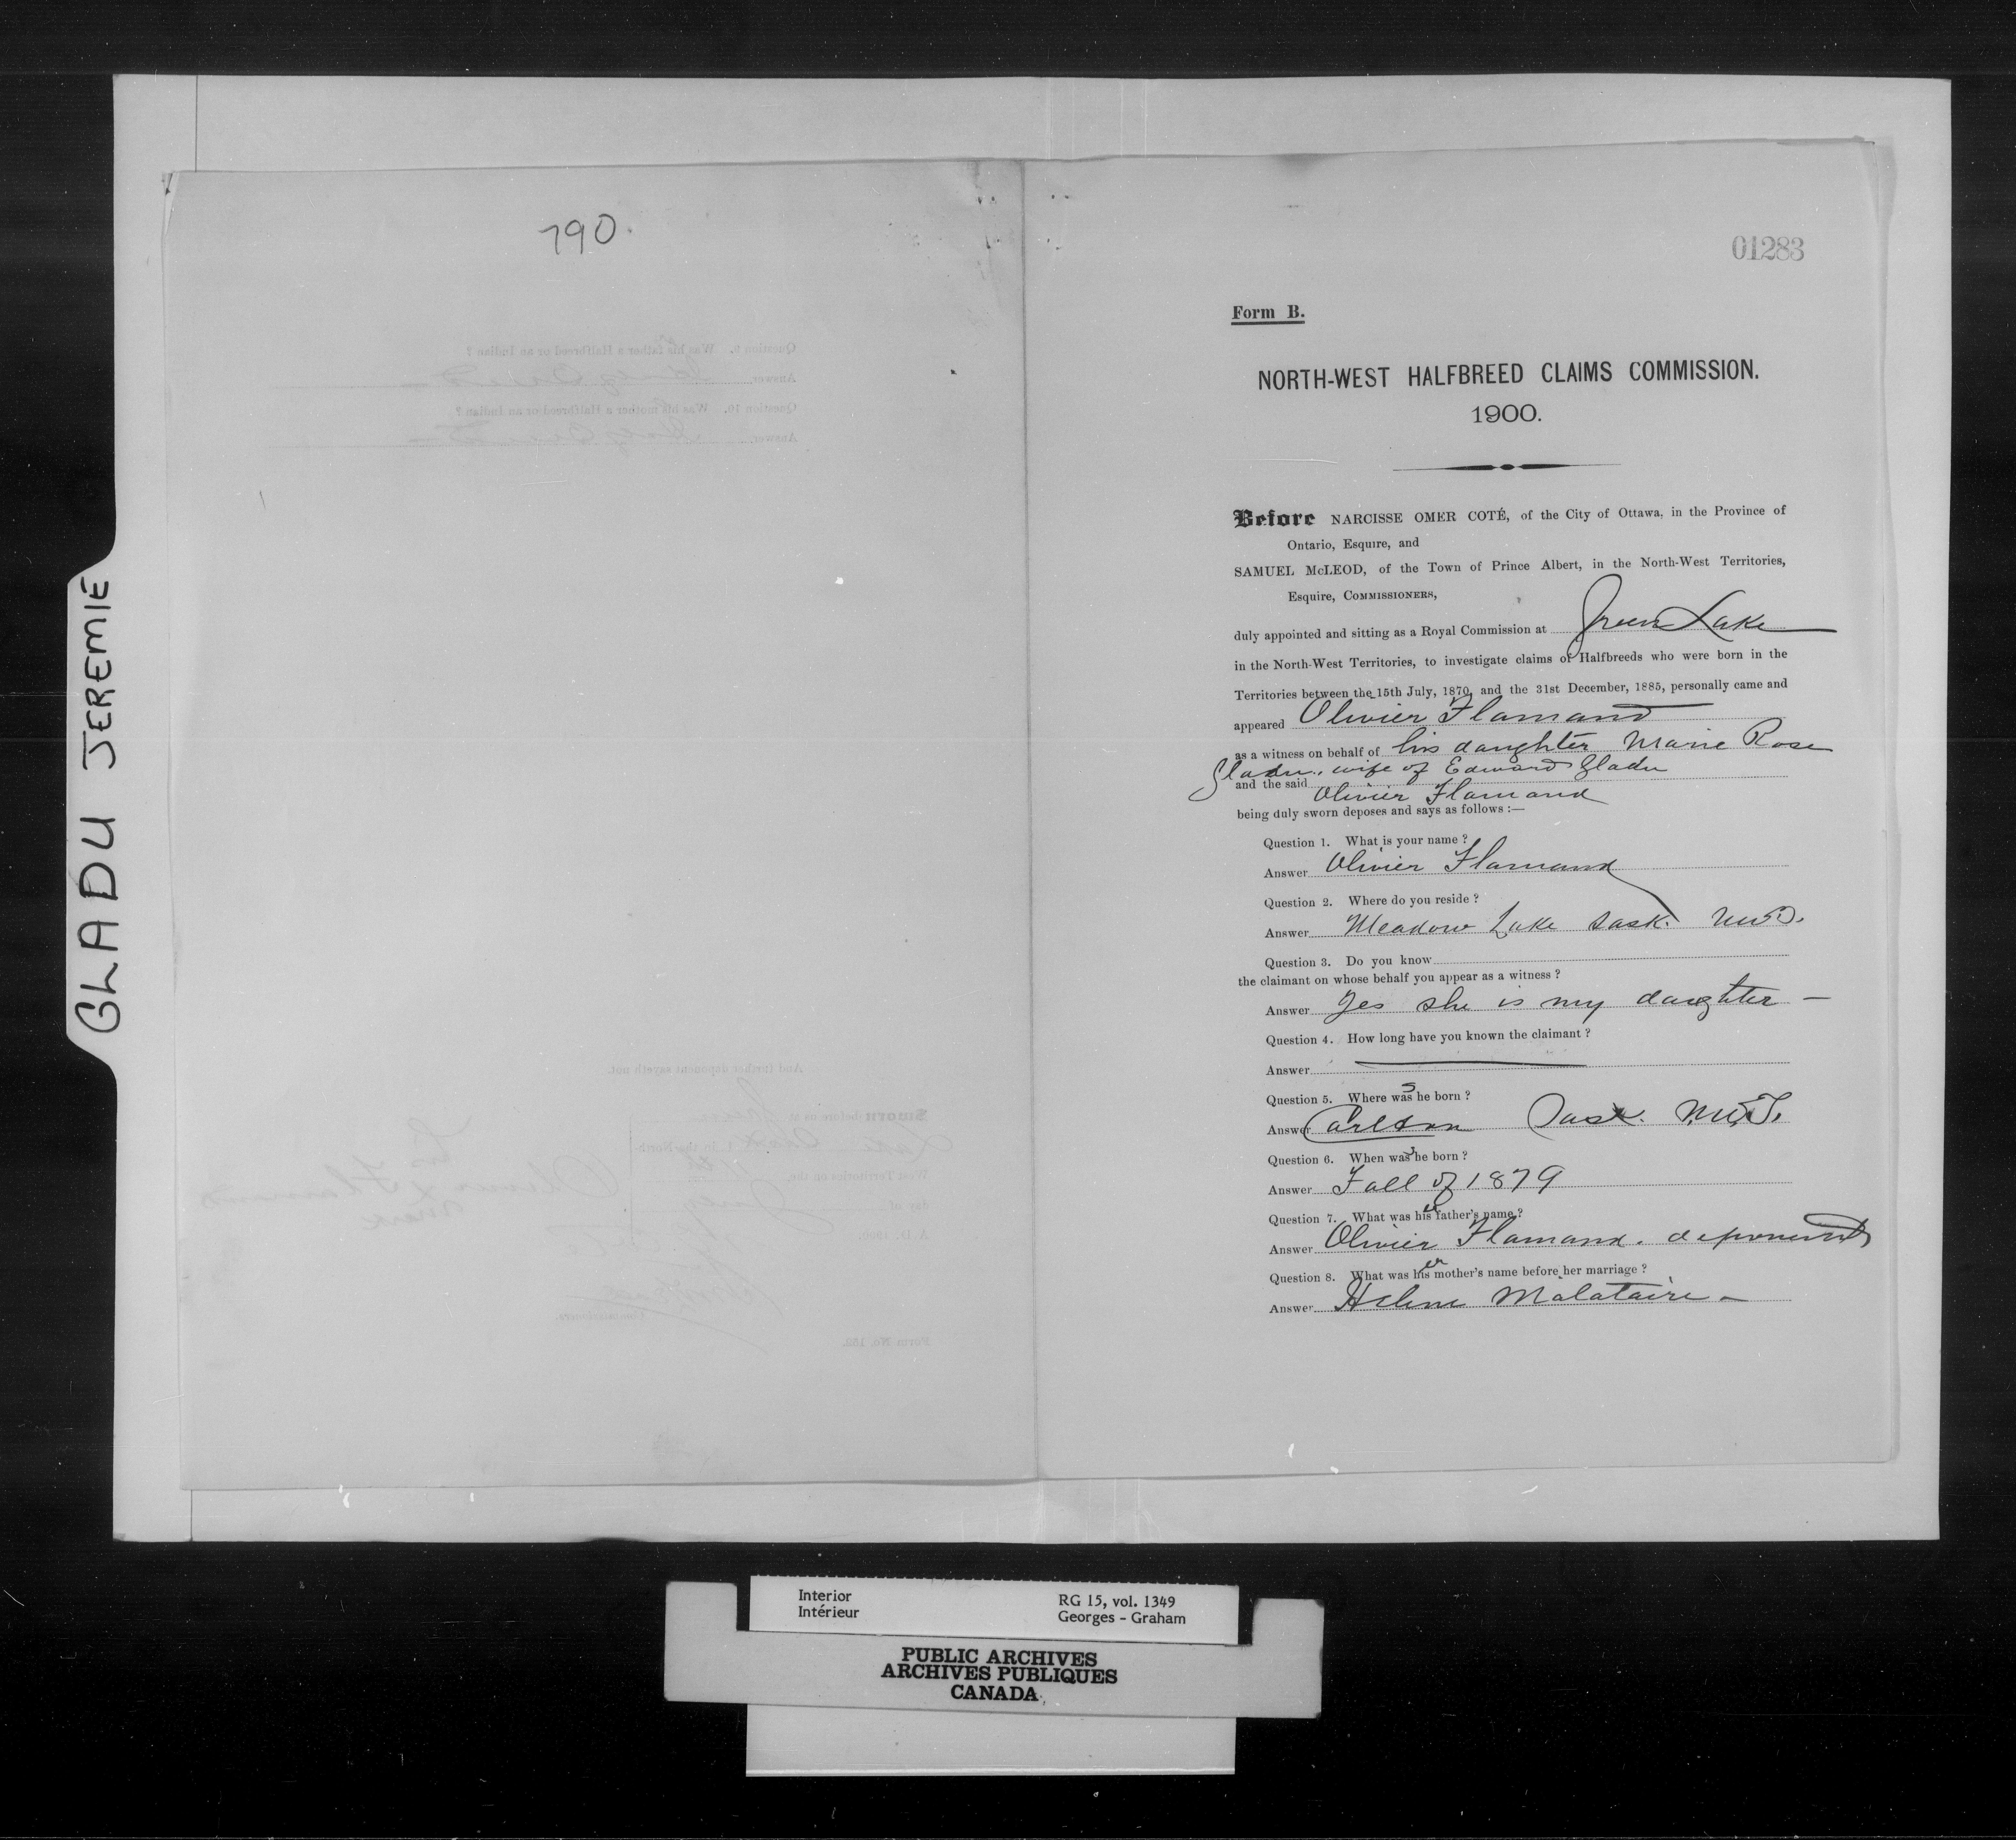 GLADU JEREMIE
790.
01283
Form B.
NORTH-WEST HALFBREED CLAIMS COMMISSION.
1900.
Before NARCISSE OMER COTÉ, of the City of Ottawa, in the Province of
Ontario, Esquire, and
SAMUEL McLEOD, of the Town of Prince Albert, in the North-West Territories,
Esquire, COMMISSIONERS,
duly appointed and sitting as a Royal Commission at Green Lake
in the North-West Territories, to investigate claims of Halfbreeds who were born in the
Territories between the 15th July, 1870, and the 31st December, 1885, personally came and
appeared Olivier Flamand
as a witness on behalf of his daughter Marie Rose
Gladu, wife of Edward Gladu
and the said Olivier Flamand
being duly sworn deposes and says as follows :—
Question 1. What is your name ?
Answer Olivier Flamand
Question 2. Where do you reside ?
Answer Meadow Lake Sask. NWT.
Question 3. Do you know
the claimant on whose behalf you appear as a witness ?
Answer Yes she is my daughter —
Question 4. How long have you known the claimant ?
Answer
Question 5. Where was she born ?
Answer Carlton Sask. N.W.T.
Question 6. When was she born ?
Answer Fall of 1879
Question 7. What was his er father's name ?
Answer Olivier Flamand. deponent
Question 8. What was his er mother's name before her marriage ?
Answer Helene Malataire —
Question 9. Was his father a Halfbreed or an Indian ?
Answer
Question 10. Was his mother a Halfbreed or an Indian ?
Answer
And further deponent sayeth not.
Sworn before us at Green
Lake
West Territories on the
day of
A. D. 1900.
his
Olivier x Flamand
mark
Commissioners.
Form No. 152.
Interior
Intérieur
RG 15, vol. 1349
Georges - Graham
PUBLIC ARCHIVES
ARCHIVES PUBLIQUES
CANADA